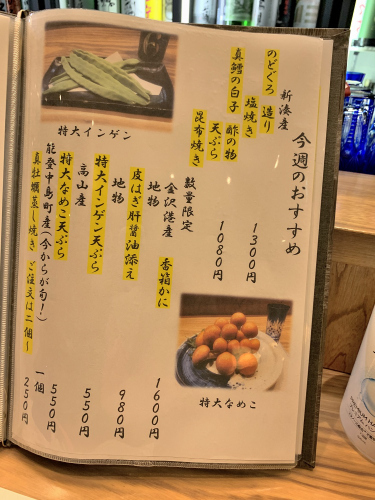 今週のおすすめ
新湊産
のどぐろ 造り
塩焼き
1300円
真鱈の白子 酢の物
天ぷら
昆布焼き
1080円
数量限定
金沢港産
香箱かに
1600円
地物
皮はぎ肝醤油添え
980円
地物
特大インゲン天ぷら
550円
高山産
特大なめこ天ぷら
550円
能登中島町産(今からが旬!)
真牡蠣蒸し焼き ご注文は二個〜
一個
250円
特大インゲン
特大なめこ